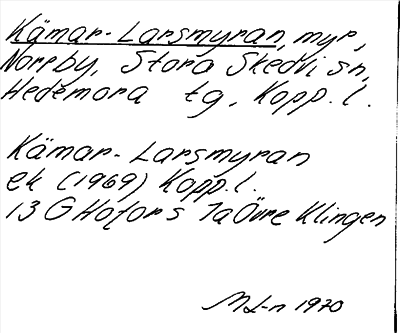 Kämar-Larsmyran, myr,
Norrby, Stora Skedvi sn,
Hedemora tg, Kopp. l.
Kämar-Larsmyran
ek (1969) Kopp. l.
13 G Hofors 7a Övre Klingen
M L-n 1970